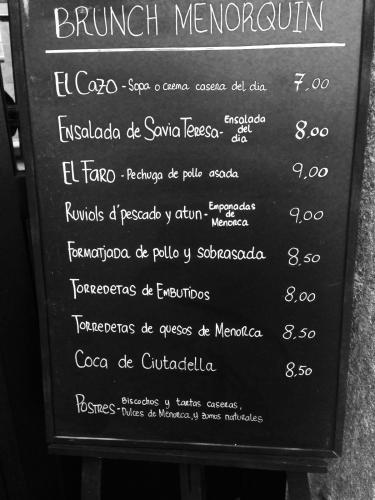 BRUNCH MENORQUIN
El Cazo - Sopa o crema casera del dia 7,00
Ensalada de Savia Teresa - Ensalada del dia 8,00
El Faro - Pechuga de pollo asada 9,00
Ruviols d'pescado y atun - Empanadas de Menorca 9,00
Formatjada de pollo y sobrasada 8,50
Torredetas de Embutidos 8,00
Torredetas de quesos de Menorca 8,50
Coca de Ciutadella 8,50
Postres - Biscochos y tartas caseras,
Dulces de Menorca, y zumos naturales